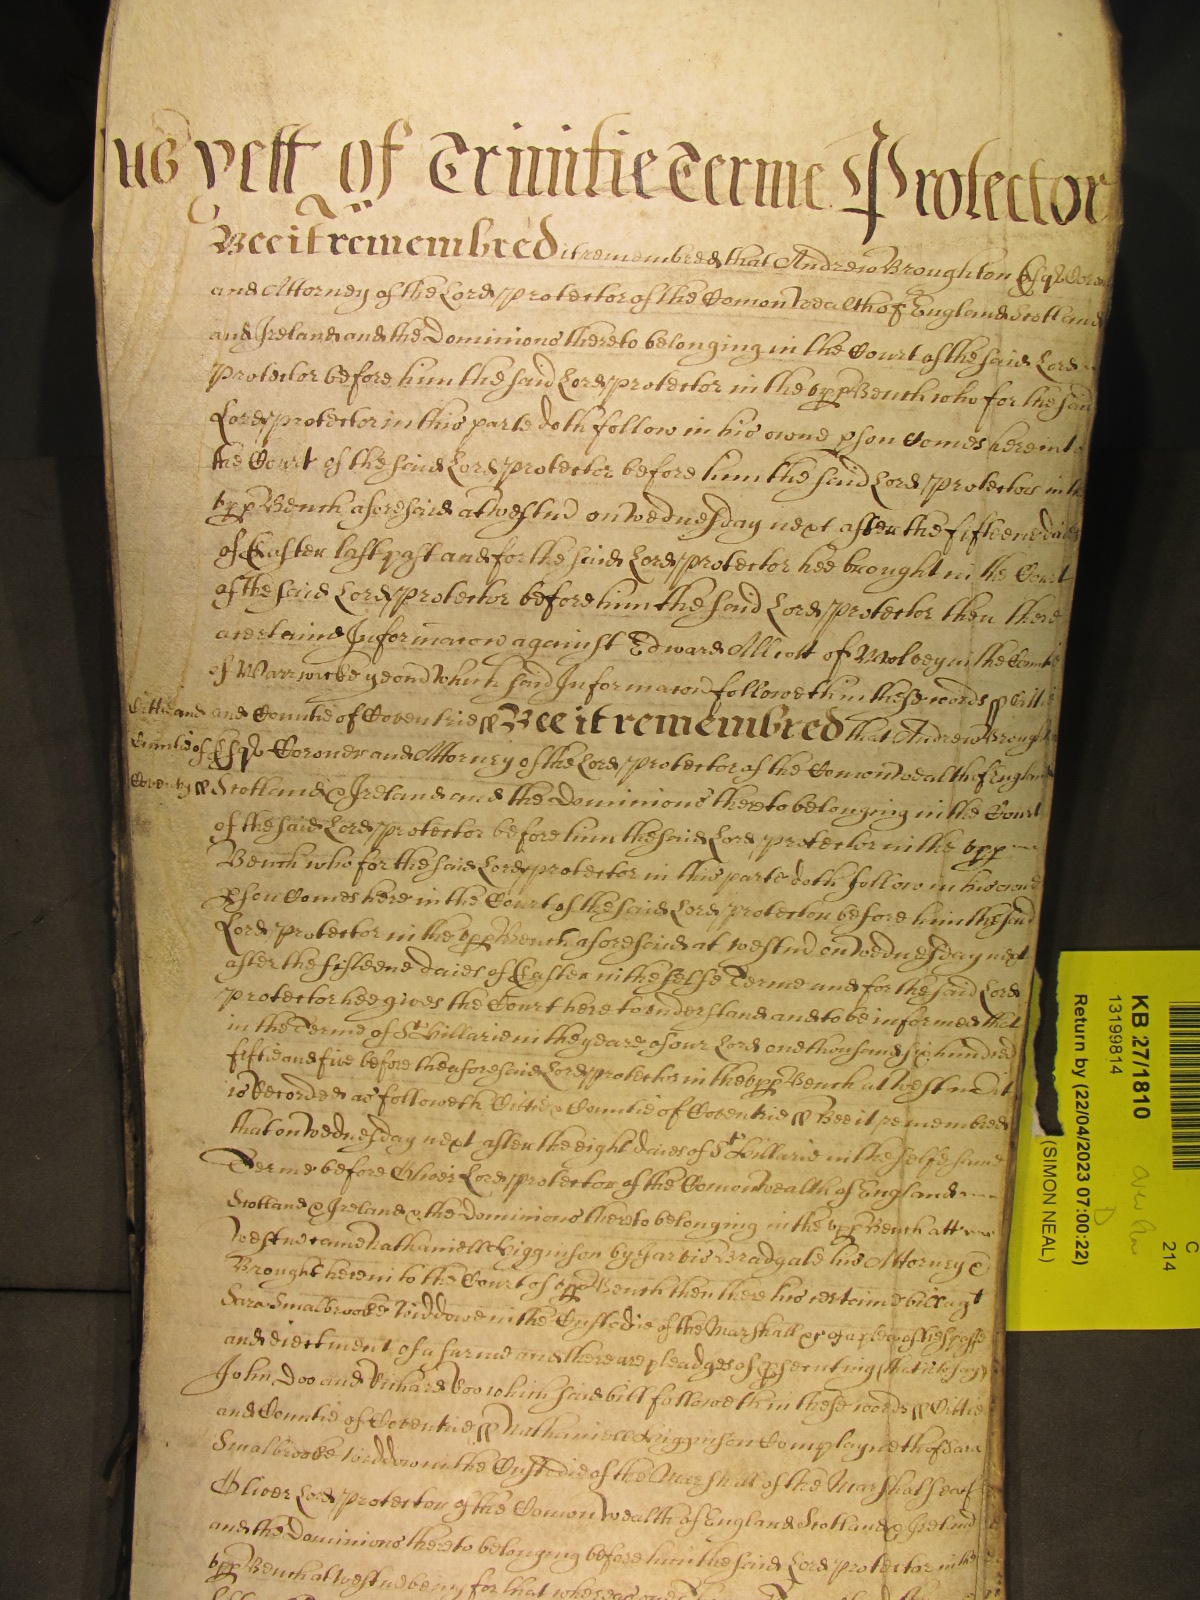 us yett of Trinitie Terme Protector
Bee it remembred it remembred that Andrew Broughton Esqr Coron
and Attorney of the Lord Protector of the Comonwealth of England Scotland
and Ireland and the Dominions thereto belonging in the Court of the said Lord
Protector before him the said Lord Protector in the upp Bench who for the said
Lord Protector in this parte doth follow in his owne pson Comes here into
the Court of the said Lord Protector before him the said Lord Protector in the
upp Bench aforesaid at Westm on Wednesday next after the fifteene daies
of Easter last past and for the said Lord Protector hee brought in the Court
of the said Lord Protector before him the said Lord Protector then there
a certaine Informacon against Edward Allcott of Wolvey in the Countie
of Warrwicke yeom which said Informacon followeth in these words ss Cittie
Cittie and and Countie of Coventrie ss Bee it remembred that Andrew Brought
Countie of Esqr Coroner and Attorney of the Lord Protector of the Comonwealth of England
Coventry ss Scotland & Ireland and the Dominions thereto belonging in the Court
of the said Lord Protector before him the said Lord Protector in the upp
Bench who for the said Lord Protector in this parte doth follow in his owne
pson Comes here in the Court of the said Lord Protector before him the said
Lord Protector in the upp Bench aforesaid at Westm on Wednesday next
after the fifteene daies of Easter in the selfe Terme and for the said Lord
Protector hee gives the Court here to understand and to be informed that
in the Terme of St Hillarie in the yeare of our Lord one thousand six hundred
fiftie and five before the aforesaid Lord Protector in the upp Bench at Westm it
is Recorded as followeth Cittie & Countie of Coventrie ss Bee it remembred
that on Wednesday next after the eight daies of St Hillarie in the selfe same
Terme before Oliver Lord Protector of the Comonwealth of England
Scotland & Ireland & the Dominions thereto belonging in the upp Bench att
Westm came Nathaniell Higginson by Jarvis Bradgate his Attorney &
Brought here into the Court of upp Bench then there his certaine bill agt
Sara Smalbrooke Widdowe in the Custodie of the Marshall &c of a plea of trespasse
and eiectment of a farme and there are pledges of psecuting (that is to say)
John Doo and Richard Roo which said bill followeth in these words ss Cittie
and Countie of Coventrie ss Nathaniell Higginson Complayneth of Sara
Smalbrooke widdow in the Custodie of the Marshal of the Marshalsea of
Oliver Lord Protector of the Comonwealth of England Scotland & Ireland
and the Dominions thereto belonging before him the said Lord Protector in the
upp Bench at Westm being for that whereas
KB 27/1810
13199814
Return by (22/04/2023 07:00:22)
(SIMON NEAL)
C
214